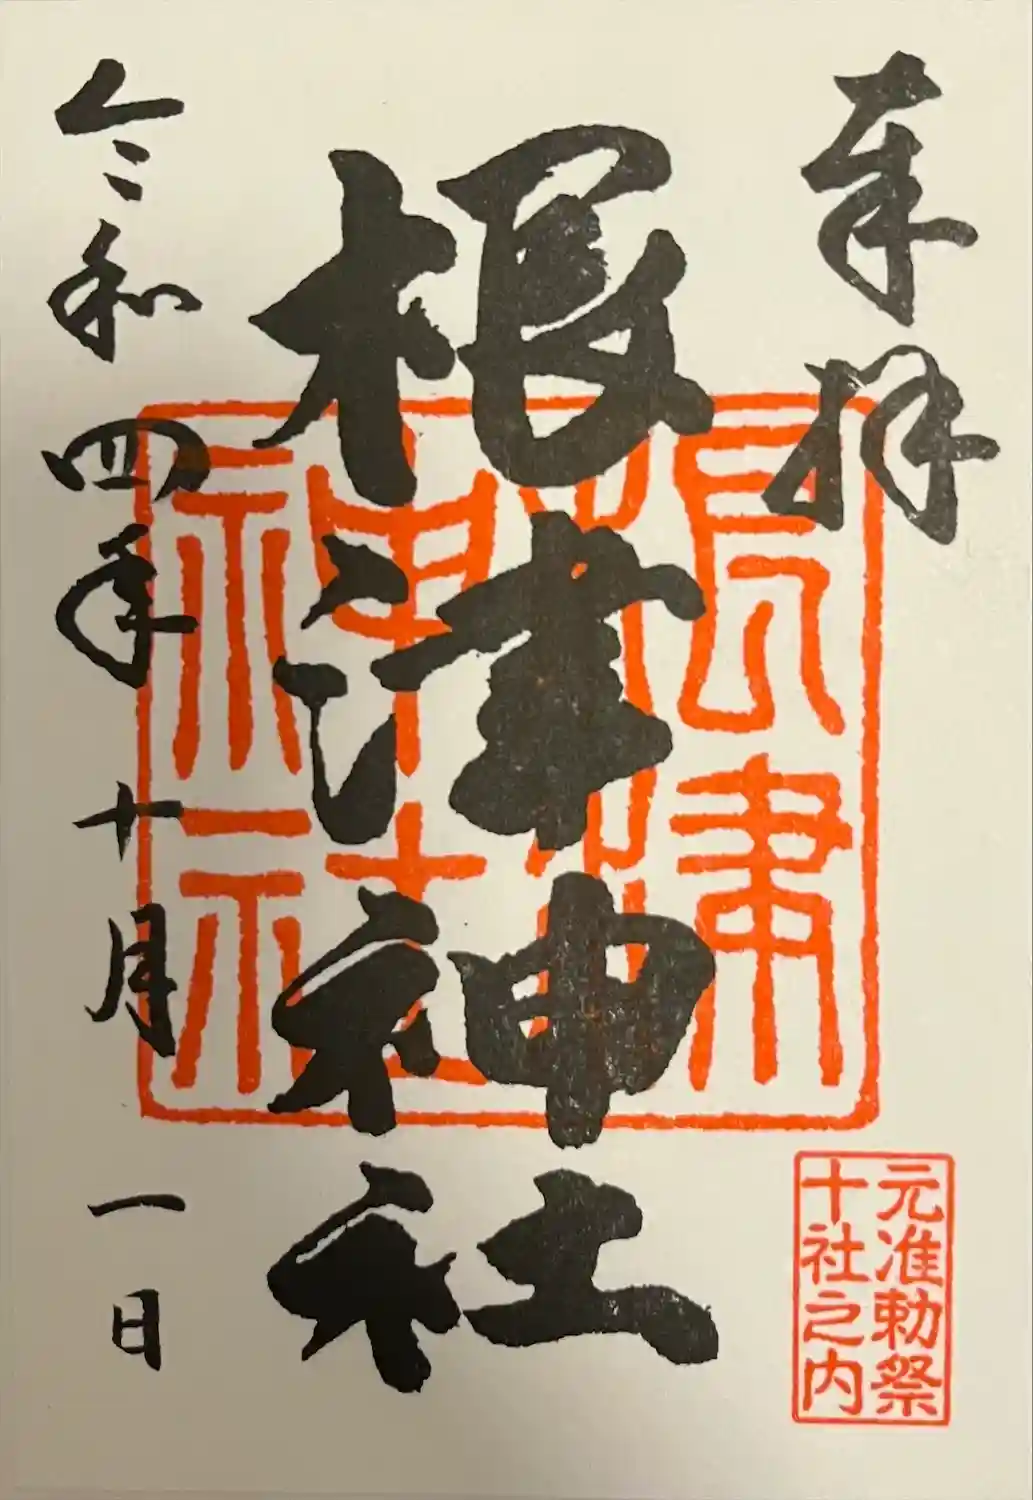 奉拝
根津神社
令和四年十月一日
根津
神社
元准勅祭
十社之内